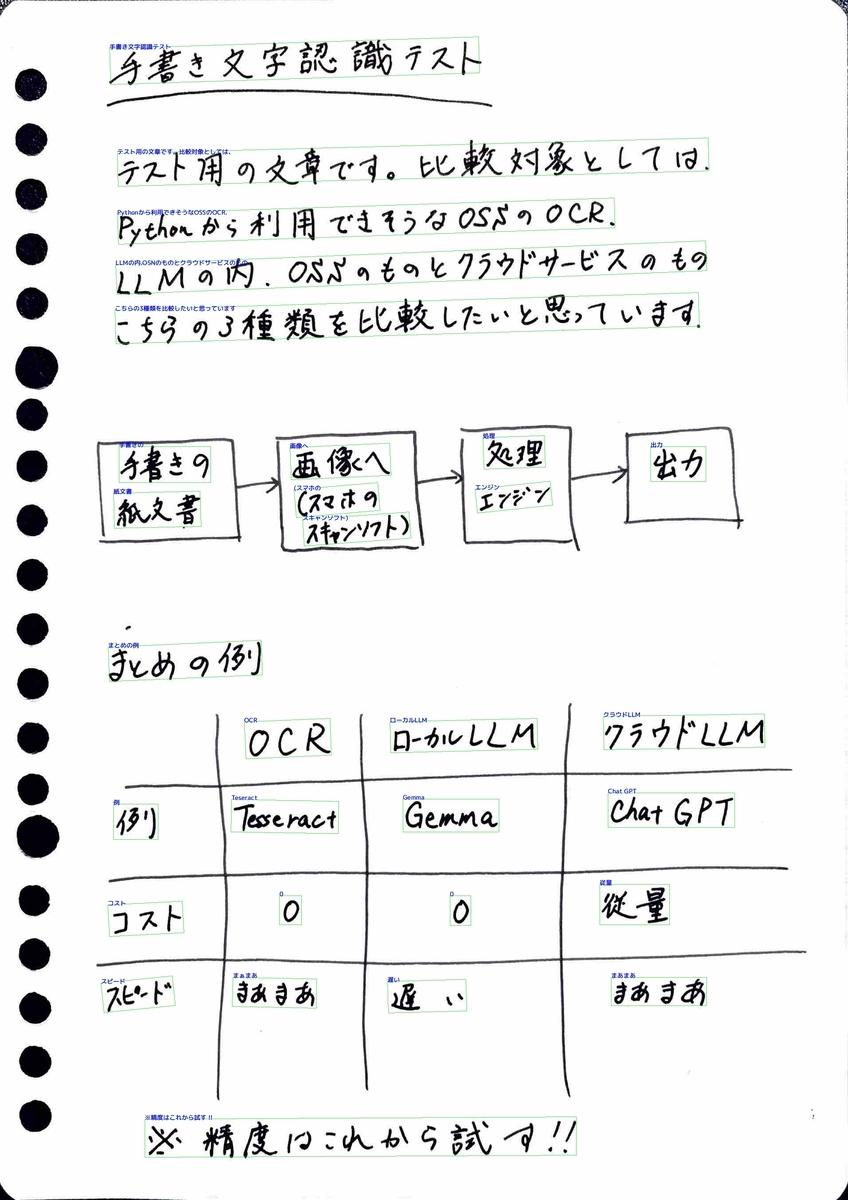 手書き文字認識テスト
手書き文字認識テスト
テスト用の文章です。比較対象としては、
テスト用の文章です。比較対象としては、
Pythonから利用できそうなOSSのOCR.
Pythonから利用できそうなOSSのOCR.
LLMの内、OSNのものとクラウドサービスのもの
LLMの内、OSSのものとクラウドサービスのもの
こちらの3種類を比較したいと思っています
こちらの3種類を比較したいと思っています.
手書きの 画像へ 処理 出力
手書きの 画像へ 処理 出力
紙文書 (スマホの エンジン
紙文書 (スマホの エンジン
スキャンソフト)
スキャンソフト)
まとめの例
まとめの例
OCR ローカルLLM クラウドLLM
OCR ローカルLLM クラウドLLM
例 Teseract Gemma Chat GPT
例 Tesseract Gemma Chat GPT
コスト 0 0 従量
コスト 0 0 従量
スピード まぁまあ 遅い まあまあ
スピード まあまあ 遅い まあまあ
※精度はこれから試す!!
※精度はこれから試す!!